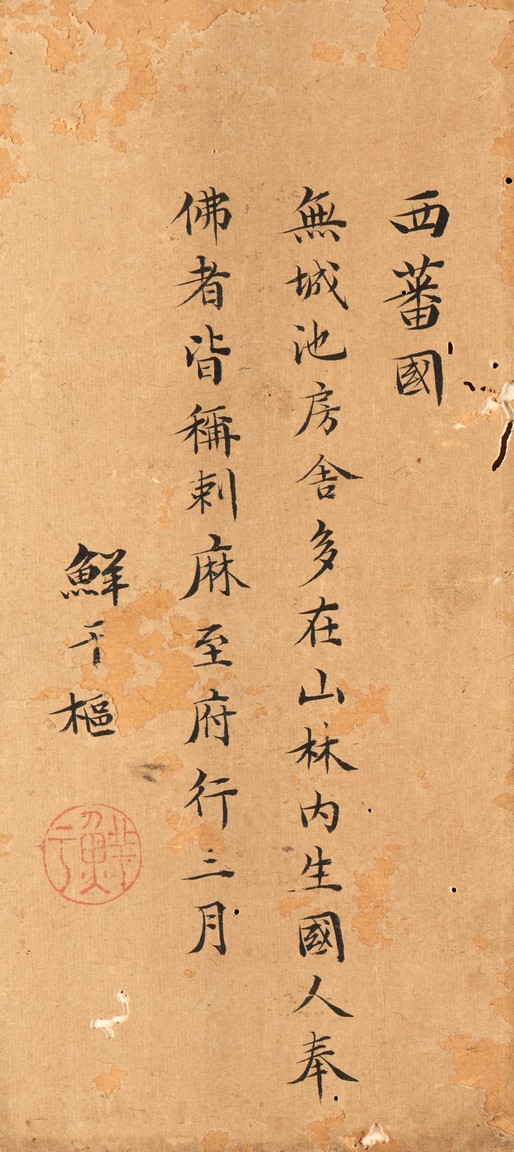 西蕃國
無城池房舍多在山林内生國人奉
佛者皆稱剌麻至府行三月
鮮于樞
鮮于